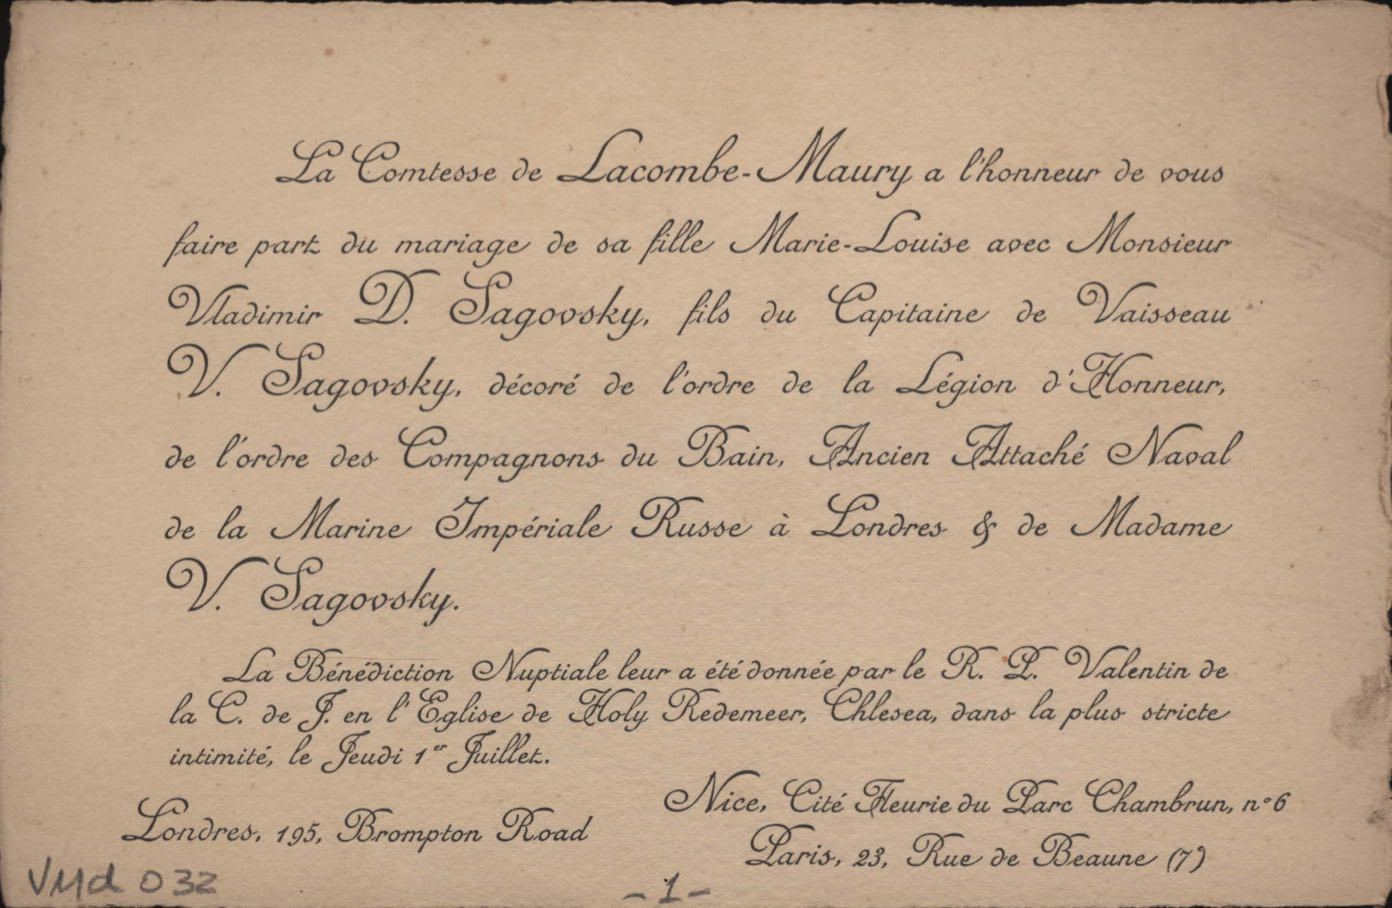 La Comtesse de Lacombe-Maury a l'honneur de vous
faire part du mariage de sa fille Marie-Louise avec Monsieur
Vladimir D. Sagovsky, fils du Capitaine de Vaisseau
V. Sagovsky, décoré de l'ordre de la Légion d'Honneur,
de l'ordre des Compagnons du Bain, Ancien Attaché Naval
de la Marine Impériale Russe à Londres & de Madame
V. Sagovsky.
La Bénédiction Nuptiale leur a été donnée par le R. P. Valentin de
la C. de J. en l'Eglise de Holy Redemeer, Chlesea, dans la plus stricte
intimité, le Jeudi 1er Juillet.
Londres, 195, Brompton Road
Nice, Cité Fleurie du Parc Chambrun, n° 6
Paris, 23, Rue de Beaune (7)
VMd 032
-1-